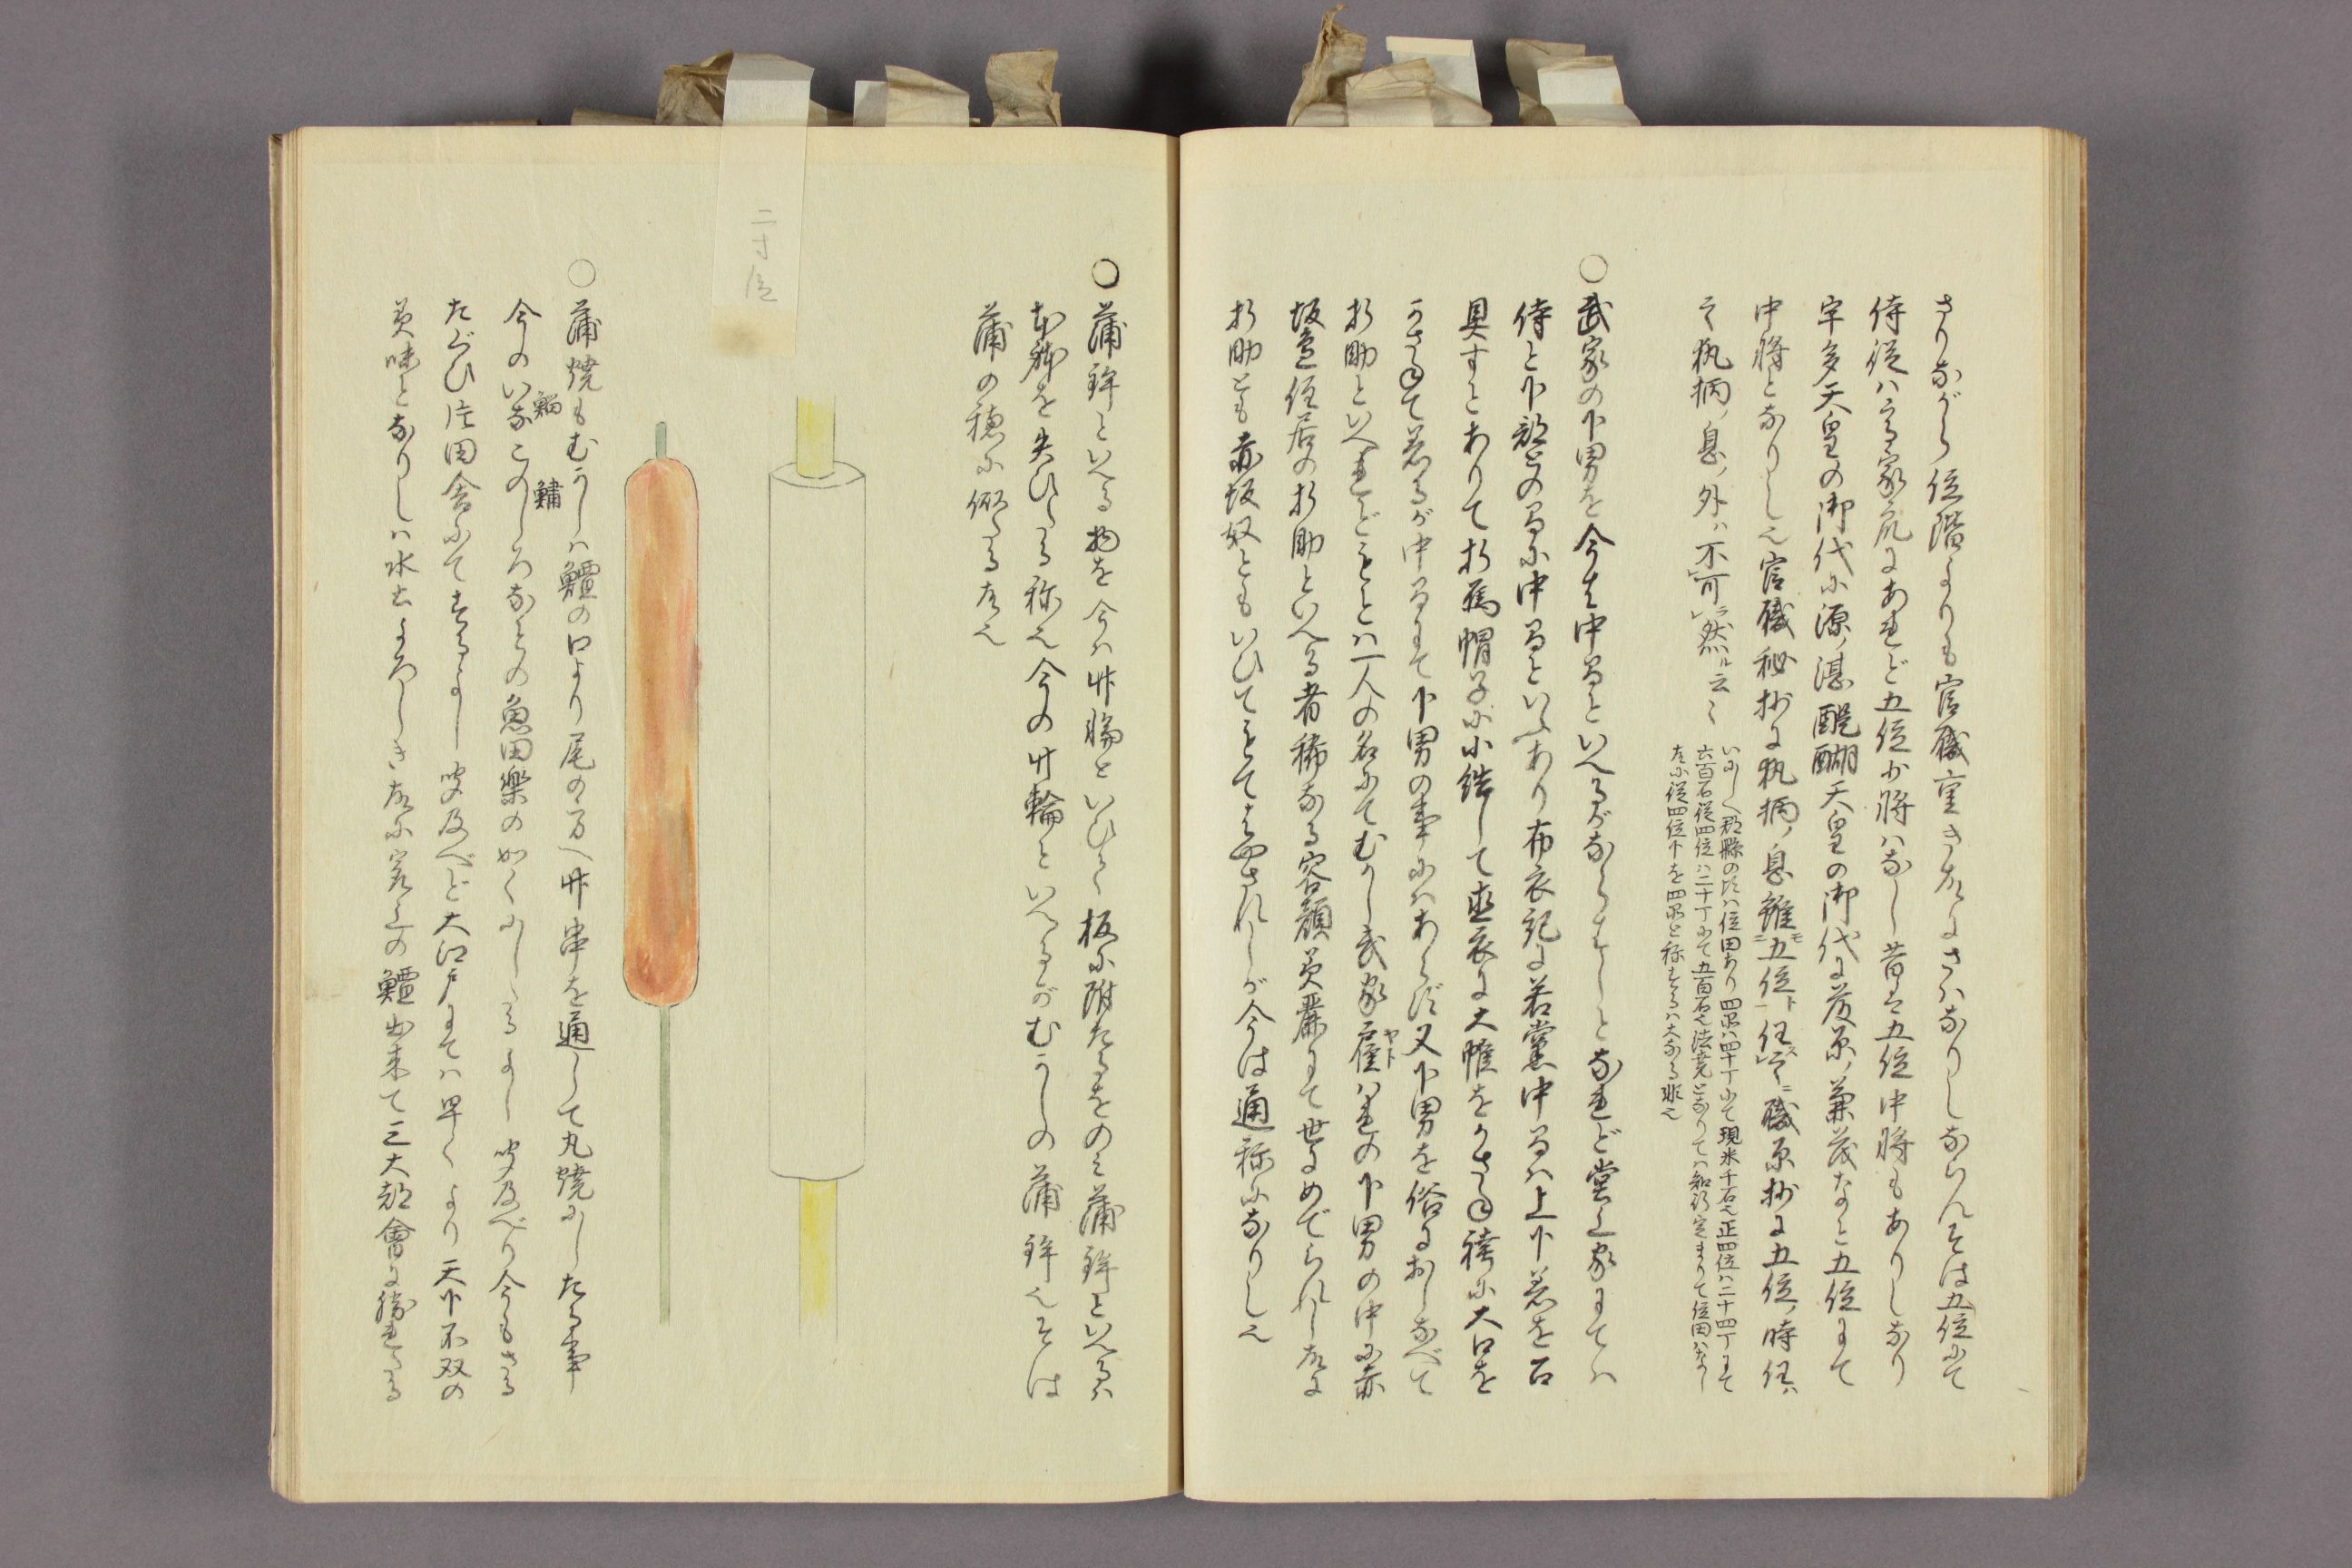 さりながら位階よりも官職重き故にさはなりしならんそは五位にて
侍従は高家衆にあれど五位少将はなし昔は五位中将もありしなり
宇多天皇の御代に源ノ湛醍醐天皇の御代に藤原ノ兼茂など五位にて
中将となりし也官職秘抄に執柄ノ息雖五位任之職原抄に五位ノ時任ハ
之執柄ノ息ノ外ハ不可然ル云々
いにしへ郡縣の時は位田あり四品は四十丁にて現米千石也正四位は二十四丁にて
六百石従四位は二十丁にて五百石也法意となりては知行定まりて位田はなし
故に従四位下を四品と称するは大なる非也
〇武家の下男を今は中間といへるがならはしとなれど堂上家にては
侍と下部との間に中間といふあり布衣記に若党中間は上下着を召
具すとありて折烏帽子に小結して直衣に大帷をかさね袴に大口を
かさねて着るが中間にて下男の事にはあらず又下男を俗におしなべて
折助といへれどもとは一人の名にてむかし武家雇はれの下男の中に赤
坂辺住居の折助といへる者稀なる容顔美麗にて世にめでられし故に
折助とも赤坂奴ともいひてもてはやされしが今は通称になりし也
〇蒲鉾といへる物を今は竹輪といひて板に附たるをのみ蒲鉾といへるは
本称を失ひたる称也今の竹輪といへるがむかしの蒲鉾也そは
蒲の穂に似たる故也
二寸位
〇蒲焼もむかしは鱣の口より尾の方へ竹串を通して丸焼にしたる事
今のいなこのしろなどの魚田樂の如くにしたるよし聞及べり今もさる
鯔
鱅
たぐひ片田舎にてするよし聞及べど大江戸にては早くより天下不双の
美味となりしは水土よろしき故に家上の鱣出来て三大都會に勝れたる